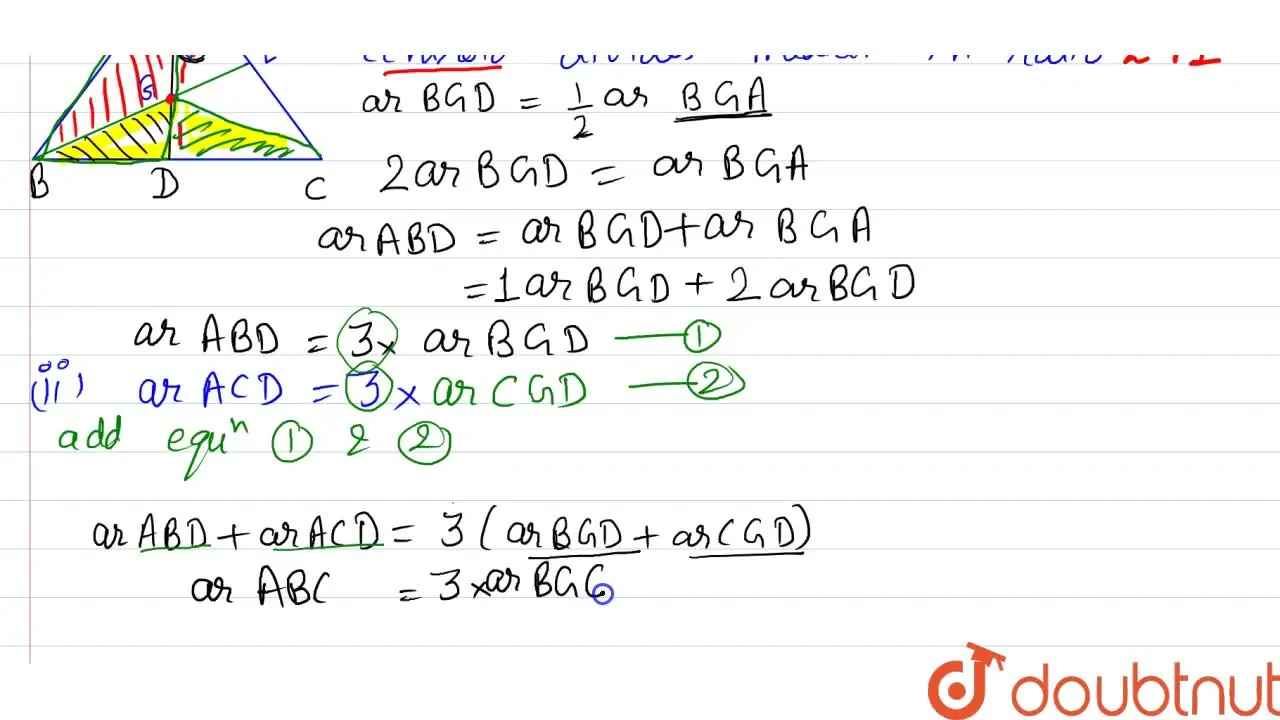 ar BGD = 1/2 ar BGA
G
B D C
2 ar BGD = ar BGA
ar ABD = ar BGD + ar BGA
= 1 ar BGD + 2 ar BGD
ar ABD = 3 × ar BGD — ①
(ii) ar ACD = 3 × ar CGD — ②
add equⁿ ① & ②
ar ABD + ar ACD = 3 (ar BGD + ar CGD)
ar ABC = 3 × ar BGC
doubtnut